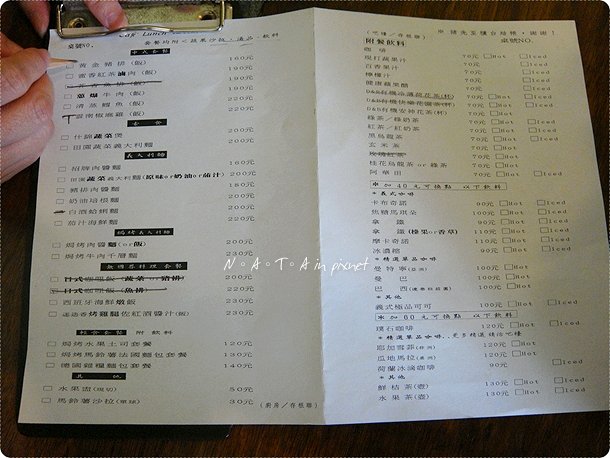 Café Lunch
桌號NO.
套餐均附之蔬果沙拉、湯品、飲料
中式套餐
黃金豬排(飯) 160元
蜜香紅茶滷肉(飯) 190元
190元
蔥爆牛肉(飯) 190元
清蒸鱈魚(飯) 220元
雲南椒麻雞(飯) 220元
素食
什錦蔬菜煲 200元
田園蔬菜義大利麵 200元
義大利麵
招牌肉醬麵 160元
田園蔬菜義大利麵(原味or奶油or茄汁) 200元
豬排肉醬麵 200元
奶油培根麵 200元
白酒蛤蜊麵 200元
茄汁海鮮麵 220元
焗烤義大利麵
焗烤肉醬麵(or飯) 200元
焗烤牛肉千層麵 230元
無國界料理 套餐
日式咖哩飯(蔬菜or豬排) 200元
日式咖哩飯(魚排) 220元
西班牙海鮮燉飯 230元
迷迭香烤雞腿佐紅酒醬汁(飯) 230元
輕食套餐 附飲料
焗烤水果土司套餐 120元
焗烤馬鈴薯法國麵包套餐 130元
德國雜糧麵包套餐 140元
其他
水果盅(現切) 50元
馬鈴薯沙拉(單球) 30元
(廚房/存根聯)
(吧檯/存根聯) ※請先至櫃台結帳，謝謝!
附餐飲料 桌號NO.
咖啡 □Hot □Iced
現打蔬果汁 70元
百香果汁 70元
檸檬汁 70元
健康蘋果醋 70元
D&S有機冷薄荷花茶(杯)
D&S有機快樂花園茶(杯)
D&S有機安神花茶(杯) 70元
綠茶/奶綠茶 70元
紅茶/紅奶茶 70元
黑烏龍茶 70元
玄米茶 70元
玫瑰紅茶
桂花烏龍茶or綠茶 70元
阿華田 70元
※加40元可換點 以下飲料
*義式咖啡
卡布奇諾 90元 □Hot □Iced
焦糖瑪琪朵 100元 □Hot □Iced
拿鐵 90元 □Hot □Iced
拿鐵(榛果or香草) 110元 □Hot □Iced
摩卡奇諾 110元 □Hot □Iced
冰濃縮 90元
*精選單品咖啡
曼特寧(亞洲) 100元 □Hot □Iced
曼巴 100元 □Hot □Iced
巴西 100元 □Hot □Iced
*其他
義式極品可可 100元 □Hot □Iced
※加60元可換點 以下飲料
璞石咖啡 120元 □Hot □Iced
*精選單品咖啡
耶加雪菲(非洲) 120元
瓜地馬拉 120元
荷蘭冰滴咖啡 90元
*其他
鮮桔茶(壺) 130元 □Hot □Iced
水果茶(壺) 130元 □Hot □Iced
N・A・T・A in pixnet